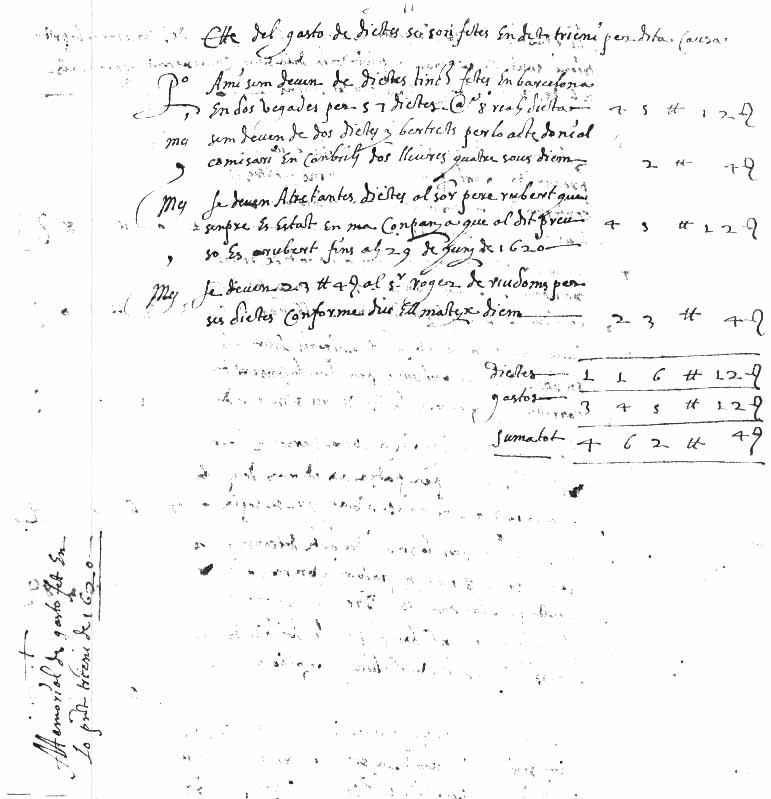 del gasto de dietes se son fetes En dit trieni per dita Causa
Po A mi sem deuen de dietes tinch fetes En barcelona
En dos vegades per 57 dietes 8 reals dieta 45 ₶ 12 ß
mes sem deuen de dos dietes y bestrets per lo acte doni al
comisari En Canbrils dos lliures quatre sous diem 2 ₶ 4 ß
Mes se deuen Atretantes dietes al sor pere rubert que
senpre Es Estat en ma Conpania que al dit preu 45 ₶ 12 ß
so Es rubert fins als 29 de juny de 1620
Mes se deuen 23 ₶ 4 ß al sr roger de riudoms per
ses dietes Conforme diu Ell matex diem 23 ₶ 4 ß
dietes 116 ₶ 12 ß
gastos 345 ₶ 12 ß
suma tot 462 ₶ 4 ß
Memorial de gasto fet En
lo pnt trieni de 1620